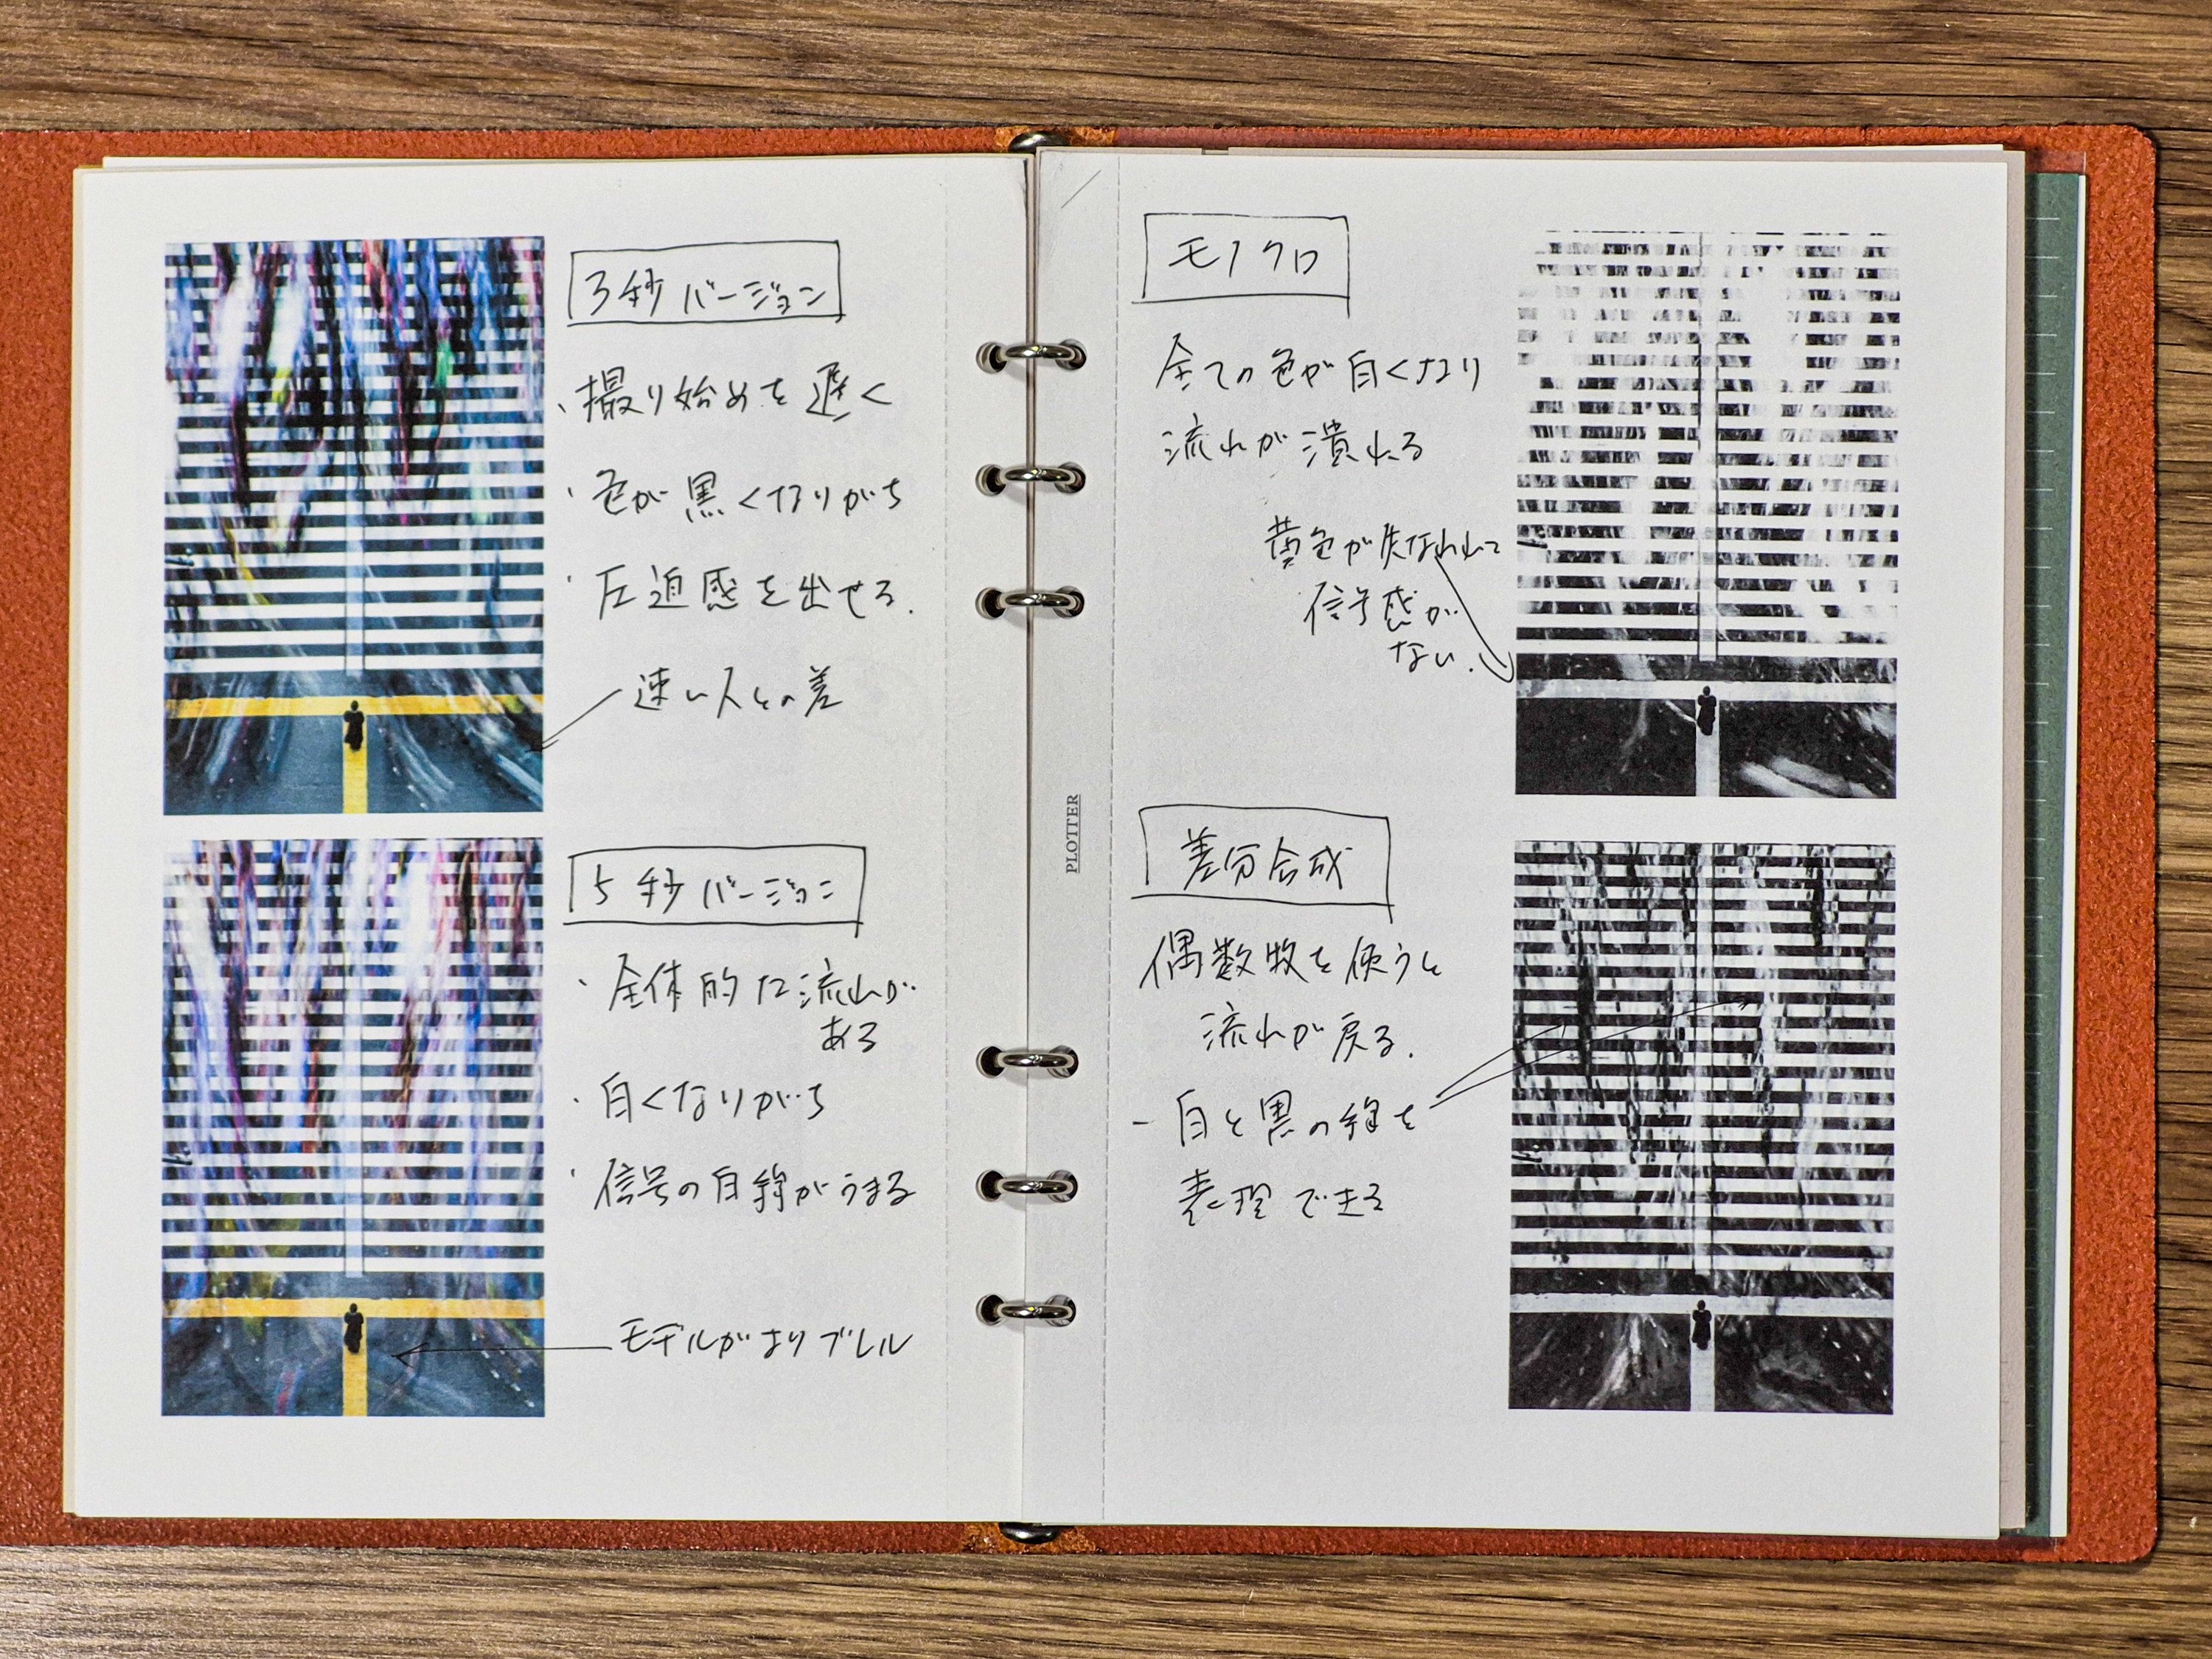 3秒バージョン
・撮り始めを遅く
・色が黒くなりがち
・圧迫感を出せる.
速い人との差
5秒バージョン
・全体的な流れが
ある
・白くなりがち
・信号の白線がうまる
モデルがよりブレル
PLOTTER
モノクロ
全ての色が白くなり
流れが潰れる
黄色が失なわれて
信号感が
ない.
差分合成
偶数枚を使うと
流れが戻る.
- 白と黒の線を
表現できる